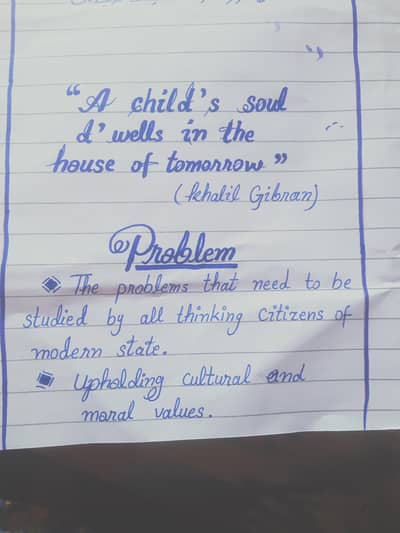 “A child's soul
d'wells in the
house of tomorrow”
(Khalil Gibran)
Problem
The problems that need to be
studied by all thinking citizens of
modern state.
Upholding cultural and
moral values.